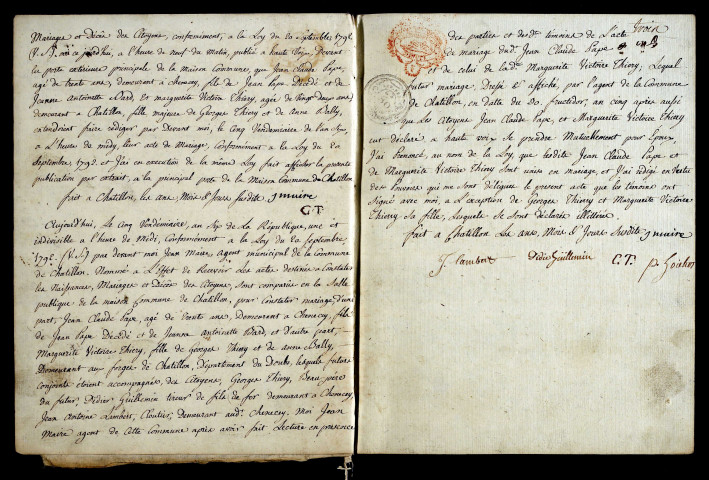 Mariages et Décès des Citoyens, conformément, a la Loy du 20 Septembre 1792
(V.S.) ai ce jourd'huy, a l'heure de neuf du Matin, publié a haute Voix, Devant
la porte exterieure principale de la Maison Commune, que Jean Claude Pape,
agé de trente ans, demeurant a Chenecey, fils de Jean Pape Décédé et de
Jeanne Antoinette Bard, Et Marguerite Victoire Thiery, agée de vingt deux ans
demeurant a Chatillon, fille majeure de Georges Thiery et de Anne Bally,
entendoient faire rédiger par Devant moi, le Cinq Vendemiaire de l'an Six,
a L'heure de midy, leur acte de Mariage, Conformément a la Loy du 20
Septembre 1792. et j'ai en execution de la même Loy fait afficher la presente
publication par extrait, a la principal porte de la Maison Commune de Chatillon
fait a Chatillon, les ans, Mois et Jours susdits. J Muire
C.T.
Aujourd'hui, Le Cinq Vendémiaire, an Six de la Republique, une et
indivisible a l'heure de Midi, Conformément a la Loy du 20 Septembre
1792. (V.S.) par devant moi Jean Maire, agent municipal de la commune
de Chatillon. Nommé a L'Effet de Recevoir Les actes destinés a Constater
les Naissances, Mariages et Décès des Citoyens, sont comparus en la Salle
publique de la maison Commune de Chatillon, pour Constater mariage, d'une
part, Jean Claude Pape, agé de trente ans, Demeurant a Chenecey, fils
de Jean Pape Décédé et de Jeanne Antoinette Bard, et D'autre part,
Marguerite Victoire Thiery, fille de Georges Thiery et de Anne Bally,
Demeurant aux forges de Chatillon, Département du Doubs, lesquels futurs
conjoints étoient accompagnés, des Citoyens, Georges Thiery, Beau père
du futur, Didier Guillemin tireur de fils de fer demeurant a Chenecey,
Jean Antoine Lambert, Cloutier, Demeurant aud. Chenecey. Moi Jean
Maire agent de Cette Commune après avoir fait Lecture en presence
des parties et desd. témoins de L'acte
de mariage dud. Jean Claude Pape
et de celui de lad. Marguerite Victoire Thiery, Lequel
futur mariage, Dressé & affiché, par l'agent de la Commune
de Chatillon, en datte du 30. fructidor, an cinq après aussi
que Les Citoyens Jean Claude Pape, et Marguerite Victoire Thiery
eut déclaré a haute voix se prendre Mutuellement pour Epoux,
J'ai prononcé, au nom de la Loy, que lesdits Jean Claude Pape et
de Marguerite Victoire Thiery Sont unis en mariage, et j'ai rédigé en Vertu
des pouvoirs qui me sont délégués le présent acte que les temoins ont
Signé avec moi, a L'exception de Georges Thiery et Marguerite Victoire
Thiery, Sa fille, Lesquels se sont déclarés illitérés.
fait a Chatillon Les ans, Mois & Jours Susdits J Muire
J. Lambert Didie Guillemin C.T.